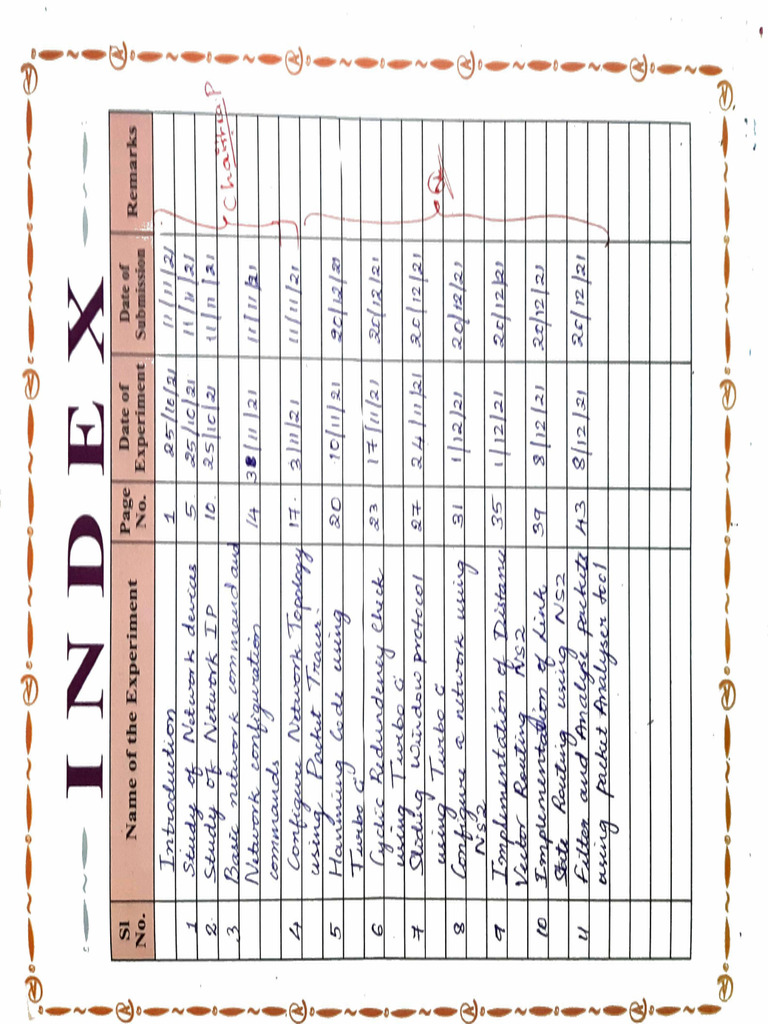 INDEX
Sl No. Name of the Experiment Page No. Date of Experiment Date of Submission Remarks
Introduction 1 25/10/21 11/11/21
1 Study of Network devices 5 25/10/21 11/11/21
2. Study of Network IP 10. 25/10/21 11/11/21
3 Basic network command and
Network configuration 14 3/11/21 11/11/21
commands
4 Configure Network Topology 17. 3/11/21 11/11/21
using Packet Tracer.
5 Hamming Code using 20 10/11/21 20/12/21
Turbo C
6 Cyclic Redundency Check 23 17/11/21 20/12/21
using Turbo C
7 Sliding Window protocol 27 24/11/21 20/12/21
using Turbo C
8 Configure a network using 31 1/12/21 20/12/21
NS2
9 Implementation of Distance 35 1/12/21 20/12/21
Vector Routing NS2
10 Implementation of Link 39 8/12/21 20/12/21
State Routing using NS2
11 Filter and Analyse packets 43 8/12/21 20/12/21
using packet Analyser tool